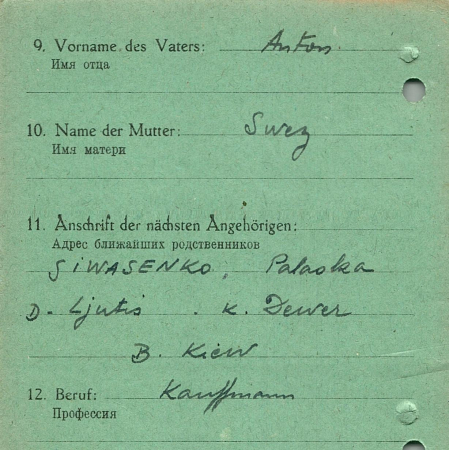 9. Vorname des Vaters: Anton
Имя отца
10. Name der Mutter: Swez
Имя матери
11. Anschrift der nächsten Angehörigen:
Адрес ближайших родственников
SIWASENKO, Palaska
D. Ljutis . K. Dewer
B. Kiew
12. Beruf: Kauffmann
Профессия